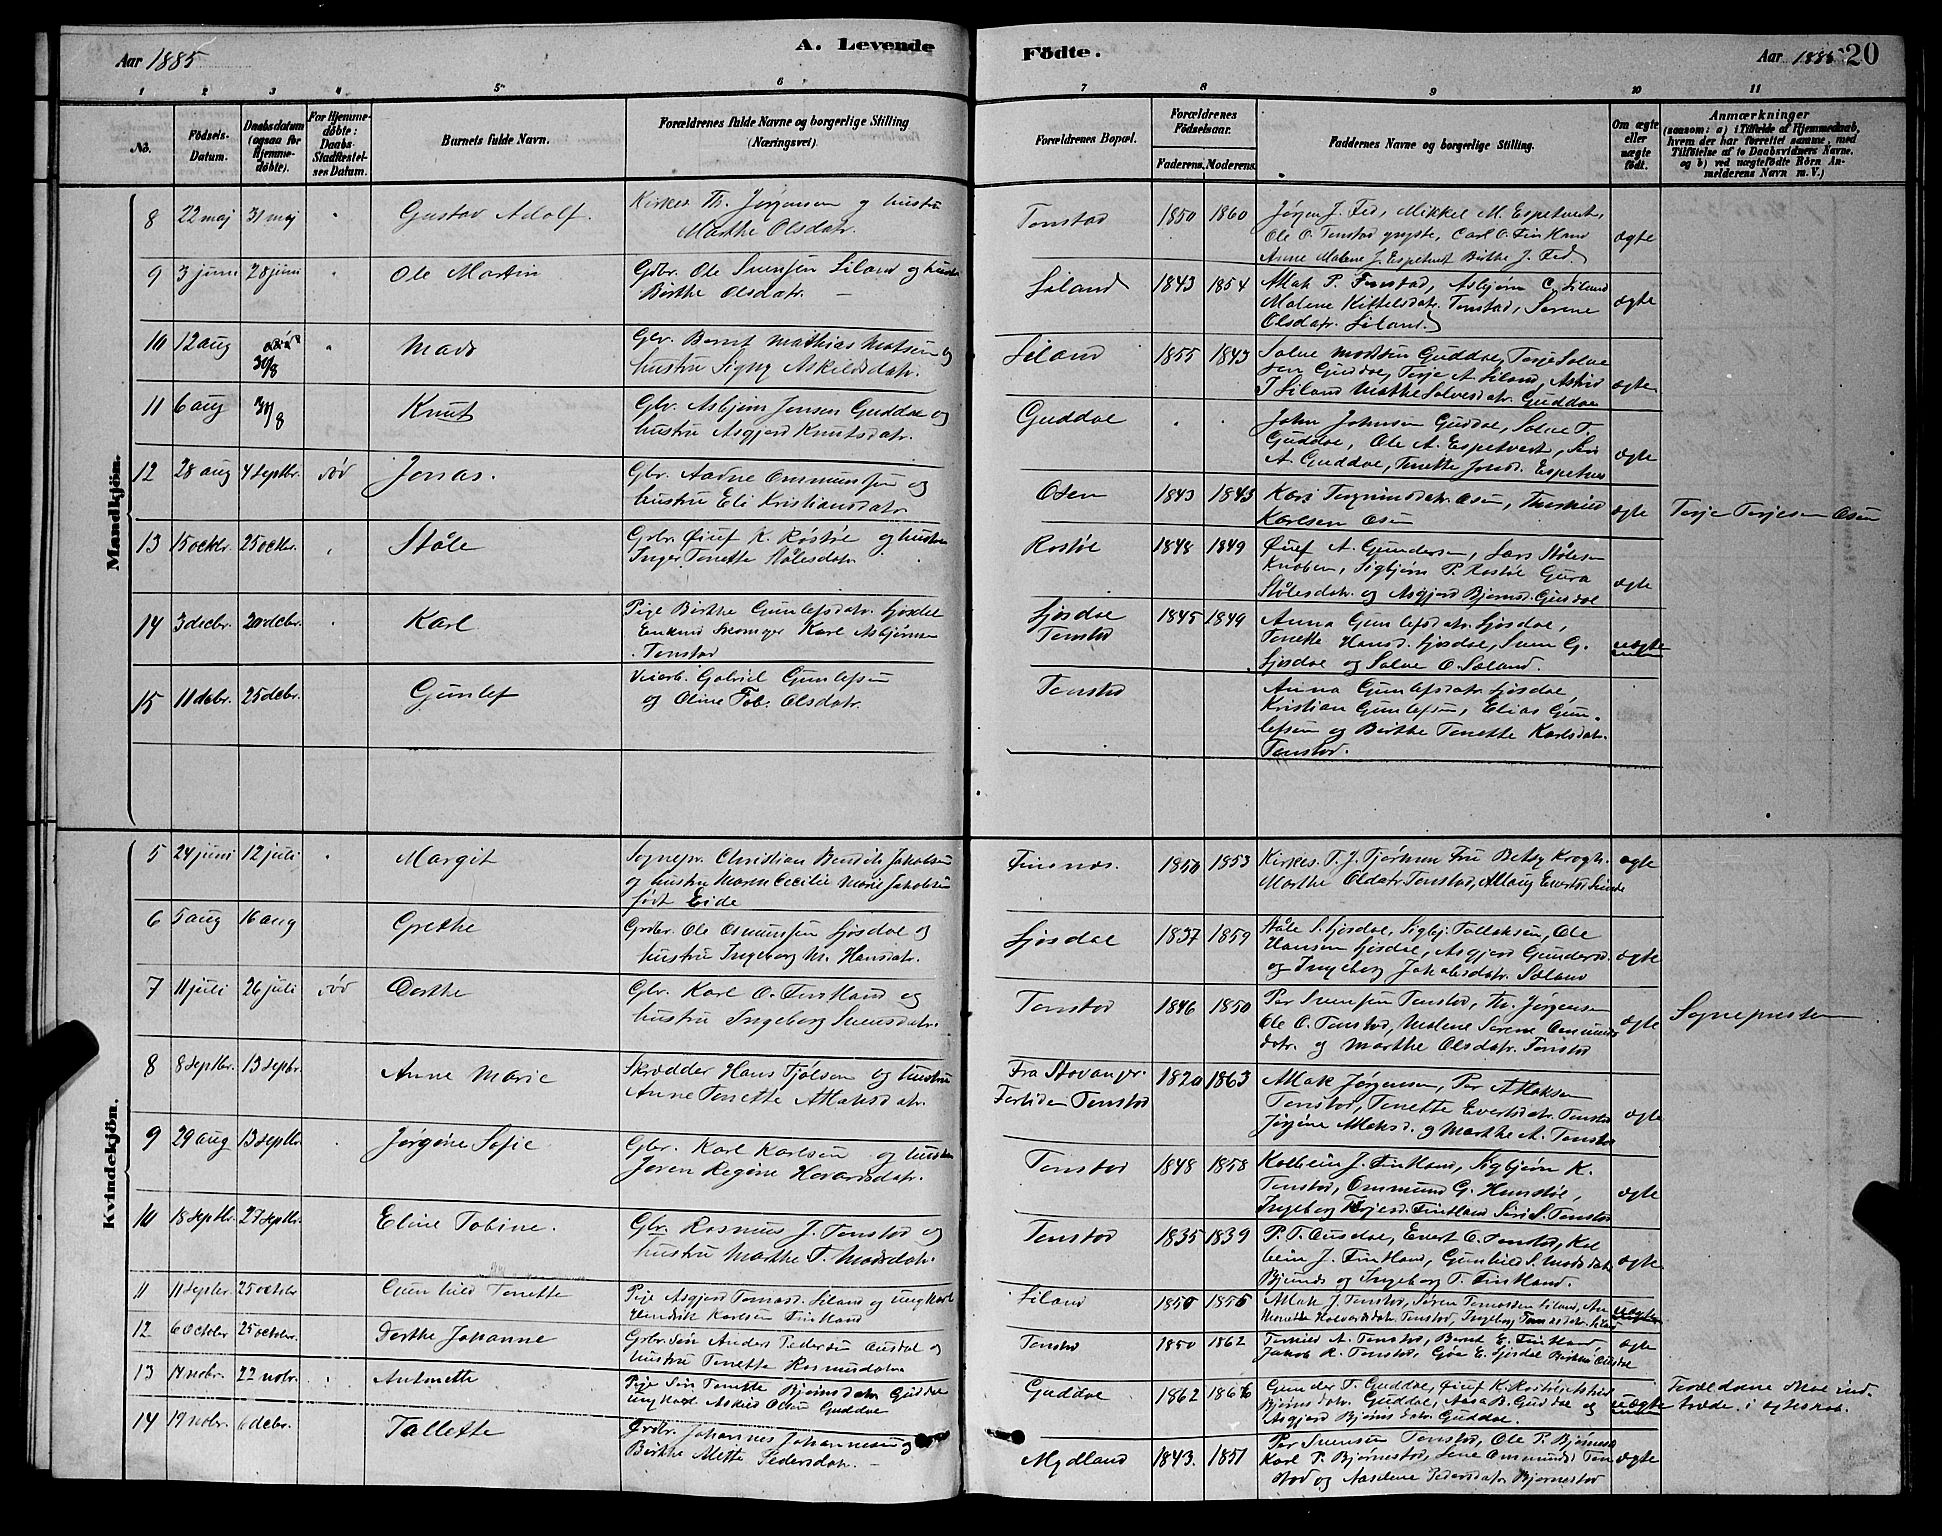 Aar 1885
A. Levende
Fødte.
Aar 1885 20
1 2 3 4 5 6 7 8 9 10 11
No.
Fødsels-Datum.
Daabsdatum (ogsaa for Hjemmedøbte).
For Hjemmedøbte: Daabs-Stadfæstelses Datum.
Barnets fulde Navn.
Forældrenes fulde Navne og borgerlige Stilling (Næringsvei).
Forældrenes Bopæl.
Forældrenes Fødselsaar.
Faderens. Moderens.
Faddernes Navne og borgerlige Stilling.
Om ægte eller uægte født.
Anmærkninger (saasom: a) i Tilfælde af Hjemmedaab, hvem der har forrettet samme, med Tilføielse af to Daabsvidners Navne, og b) ved uægtefødte Børn Anmelderens Navn m. V.)
Mandkjøn.
8 22 maj 31 maj " Gustav Adolf.
Kirkes. Th. Jørgensen og hustru
Marthe Olsdatr.
Tonstad 1850 1860
Jørgen J. Fed, Mikkel M. Espetvedt,
Ole O. Tonstad yngste, Carl O. Fintland
Anne Malene J. Espetvedt Birthe J. Fed.
ægte
9 3 juni 28 juni " Ole Martin
Gdbr. Ole Svensen Liland og hustru
Birthe Olsdatr. –
Liland 1843 1854
Atlak P. Tonstad, Asbjørn C. Liland
Malene Kittelsdatr. Tonstad, Serene
Olsdatr. Liland.
ægte
10 12 aug 30/8 " Mads
Gbr. Bernt Mathias Matsen og
hustru Signy Askildsdatr.
Liland 1855 1843
Salve Madsen Guddal, Terje Salve
sen Guddal, Terje A. Liland, Astrid
T Liland Marthe Salvesdatr. Guddal
ægte
11 6 aug 30/8 Knut
Gbr. Asbjørn Jensen Guddal og
hustru Asgjerd Knutsdatr.
Guddal . .
John Johnsen Guddal, Salve T.
Guddal, Ole A. Espetvedt, Siri
A. Guddal, Tenette Jonsd. Espetvedt
ægte
12 28 aug 4 septbr. død Jonas.
Gbr. Aadne Ommundsen og
hustru Eli Kristiansdatr.
Osen 1843 1843
Kari Torgrimsdatr. Osen, Thorkild
Karlsen Osen
ægte
Terje Terjesen Osen
13 15 octbr. 25 octbr. " Ståle
Gbr. Øiuf K. Rostøl og hustru
Inger Tonette Stålesdatr.
Rostøl 1848 1849
Øiuf A. Gundersen, Lars Stålesen
Knaben, Sigbjørn P. Rostøl Gura
Stålesdatr. og Asgjerd Bjørnsd. Guddal
ægte
14 3 decbr. 20 decbr. " Karl
Pige Birthe Gunlefsdatr. Ljosdal
Enkem. Skomager Karl Asbjørnsen
Tonstad
Ljosdal
Tonstad 1845 1849
Anna Gunlefsdatr. Ljosdal,
Tonette Hansd. Ljosdal, Sven G.
Ljosdal og Salve O. Soland.
uægte
15 11 decbr. 25 decbr. Gunlef
Veiarb. Gabriel Gunlefsen
og Oline Tob. Olsdatr.
Tonstad
Anna Gunlefsdatr. Ljosdal,
Kristian Gunlefsen, Elias Gun-
lefsen og Birthe Tonette Karlsdatr.
Tonstad.
Kvindekjøn.
5 24 juni 12 juli " Margit
Sognepr. Christian Bendik Jakobsen
og hustru Maren Cecilie Marie Jakobsen
født Eide
Finsnes. 1850 1853
Kirkes. T. J. Tjørhom Fru Betsy Krogh.
Marthe Olsdatr. Tonstad, Atlaug Evertsd. Seland
ægte
6 5 aug 16 aug Grethe
Grdbr. Ole Osmundsen Ljosdal og
hustru Ingeborg M. Hansdatr.
Ljosdal 1837 1859
Ståle S. Ljosdal, Sigbj. Tollaksen, Ole
Hansen Ljosdal, Asgjerd Gundersd.
og Ingeborg Jakobsdatr. Soland
ægte
7 11 juli 26 juli død Dorthe
Gbr. Karl O. Fintland og
hustru Ingeborg Svensdatr.
Tonstad 1846 1850
Per Svensen Tonstad, Th. Jørgensen
Ole O. Tonstad, Malene Serene Ommunds
datr. og Marthe Olsdatr. Tonstad
ægte
Sognepresten
8 8 septbr. 13 septbr. Anne Marie
Skrædder Hans Tjølsen og hustru
Anne Tonette Atlaksdatr.
Fra Stavanger.
Fortiden Tonstad 1820 1863
Atlak Jørgensen, Per Atlaksen
Tonstad, Tonette Evertsdatr. Tonstad
Jørgine Atlaksd. og Marthe A. Tonstad
ægte
9 29 aug 13 septbr. " Jørgine Sofie
Gbr. Karl Karlsen og hustru
Joren Regine Havarsdatr.
Tonstad 1848 1858
Kolbein J. Fintland, Sigbjørn K.
Tonstad, Ommund G. Hunstøl,
Ingeborg Terjesd. Fintland Siri S. Tonstad
ægte
10 18 septbr. 27 septbr. Eline Tobine.
Gbr. Rasmus J. Tonstad og
hustru Marthe T. Madsdatr.
Tonstad 1835 1839
P. T. Ousdal, Evert O. Tonstad, Kol
bein J. Fintland, Gunhild S. Madsdatr.
Bjunes og Ingeborg T. Fintland.
ægte
11 11 septbr. 25 octobr Gunhild Tonette
Pige Asgjerd Tomasd. Liland og ungkarl
Hendrik Karlsen Fintland
Liland 1855 1855
Atlak J. Tonstad, Søren Tomassen Liland, An
Tonstad, Ingeborg Tomasdatr. Liland
uægte
12 6 octobr 25 octobr. Dorthe Johanne
Grbr. Søn Anders Pedersen Ousdal og
hustru Tonette Rasmusdatr.
Tonstad 1850 1862
Torkild A. Tonstad, Bernt E. Fintland
Jakob R. Tonstad, Gøa E. Ljosdal Birthe Ousdal
ægte
13 14 nobr. 22 nobr. " Antonette
Pige Siri Tonette Bjørnsdatr. Guddal
Ungkarl Askild Olsen Guddal
Guddal 1862 1866
Gunder T. Guddal, Øiuf K. Rostøl, Astrid
Bjørnsdatr. Guddal, Aasa B. Guddal og
Asgjerd Bjørnsdatr. Guddal.
uægte
Forældrene skal ind-
træde i ægteskab.
14 19 nobr. 6 decbr. Tallette
Grdbr. Johannes Johannesen og
Birthe Mette Pedersdatr. –
Mydland 1843. 1851
Per Svensen Tonstad, Ole P. Bjørnestad
Karl P. Bjørnestad, Lene Ommundsd. Ton
stad og Aaselene Pedersdatr. Bjørnestad
ægte